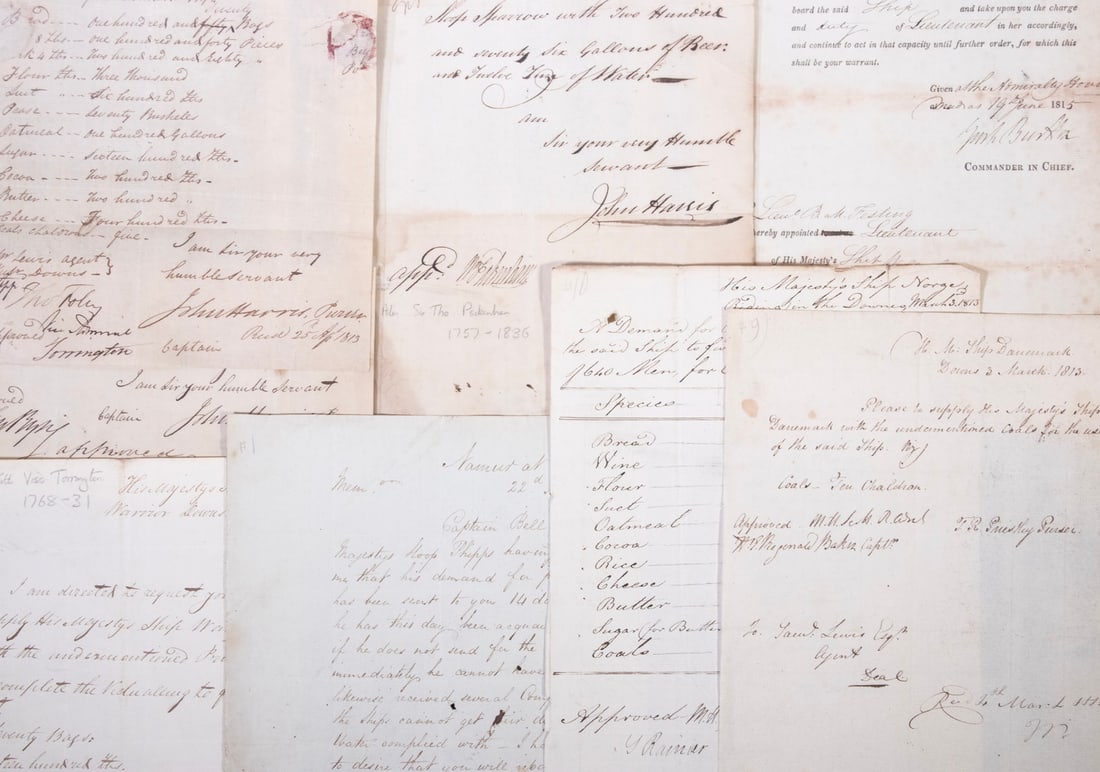 Bread ---- one hundred and fifty Bags
twenty
8 ths - one hundred and forty Pieces
4 ths - two hundred and eighty "
Flour ths - Three Thousand
Suet " - Six hundred ths
Pease - - Seventy Bushels
Oatmeal - one hundred Gallons
Sugar ---- Sixteen hundred ths -
Cocoa ---- Two hundred ths -
Butter - - Two hundred "
Cheese - - Four hundred ths -
Coals chaldron - five -
Lewis agent
Downs -
Tho Foley
Vice Admiral
Torrington
Captain
I am Sir your very
humble servant
John Harris, Purser
Recd 25th Apl 1813
I am Sir your humble servant
Captain
John
approved
Visc Torrington
1768-31
His Majesty's S
Warrior Downs
I am directed to request yo
pply His Majestys Ship W
the undermentioned
complete the Victualling to
wenty Bags
hundred ths.
Sloop Sparrow with Two Hundred
and seventy Six Gallons of Beer
and Twelve Tuns of Water
am
Sir your very Humble
servant
John Harris
appd.
Sir Tho Pakenham
1757-1836
board the said Ship and take upon you the charge
and duty of Lieutenant in her accordingly,
and continue to act in that capacity until further order, for which this
shall be your warrant.
Given at the Admiralty House
Madras 19th June 1815
COMMANDER IN CHIEF.
Lieut B M Festing
hereby appointed Lieutenant
of His Majesty's Ship
#1
Namur at
22d
Mem on
Captain Bell
Majestys Sloop Phipps having
me that his demand for
has been sent to you 14 da
he has this day been acqua
if he does not send for the
immediately, he cannot have
likewise received several Com
the Ships cannot get their
Water complied with - I h
to desire that you will
#10
His Majesty's Ship Norge
in the Downs, March 3. 1813
A Demand for
the said Ship to
of 640 Men, for
Species
Bread
Wine
Flour
Suet
Oatmeal
Cocoa
Rice
Cheese
Butter
Sugar (for Butter
Coals
Approved
J Rainier
#9
H. M. Ship Danemark
Downs 3 March. 1813.
Please to supply His Majesty's Ship
Danemark with the undermentioned Coals for the use
of the said Ship. Viz
Coals - Ten Chaldron.
Approved -
Hy Reginald Baker Captn
Purser.
To Saml. Lewis Esqr
Agent
Deal
Recd 4th March 181